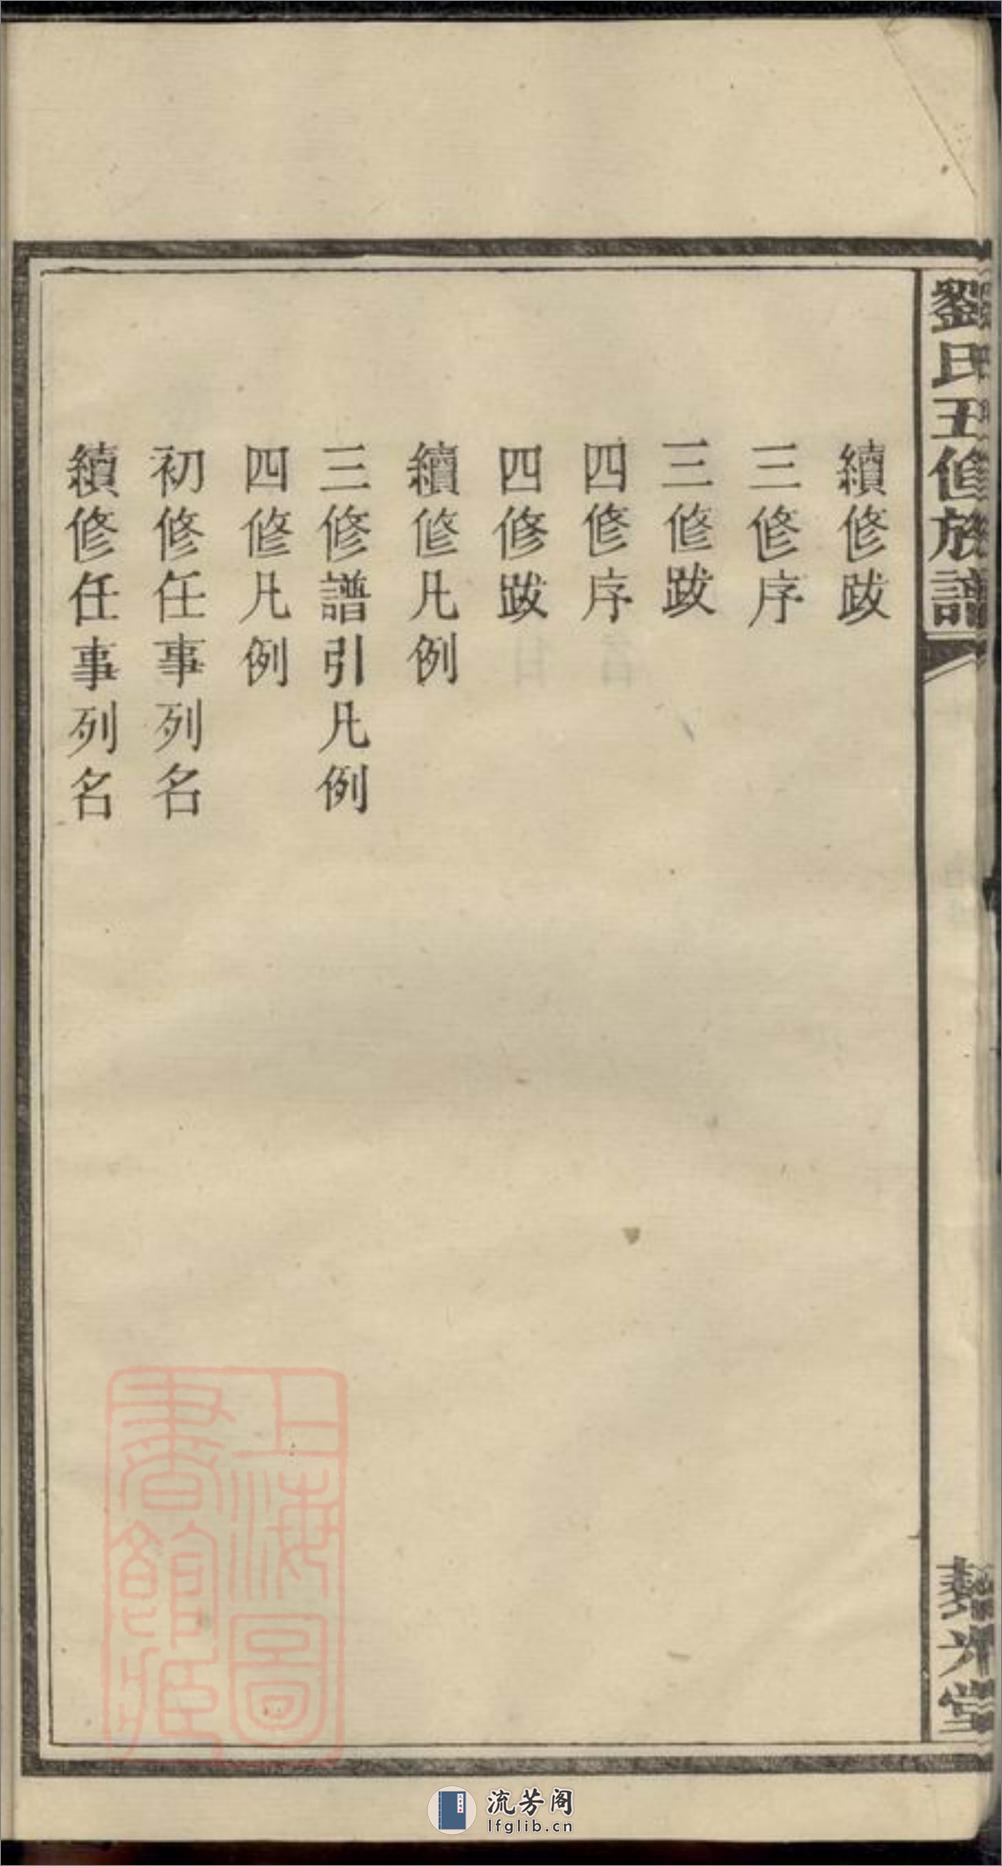 劉氏五修族譜
續修跋
三修序
三修跋
四修序
四修跋
續修凡例
三修譜引凡例
四修凡例
初修任事列名
續修任事列名
光堂
上海圖
書館藏
流芳阁
lfglib.cn